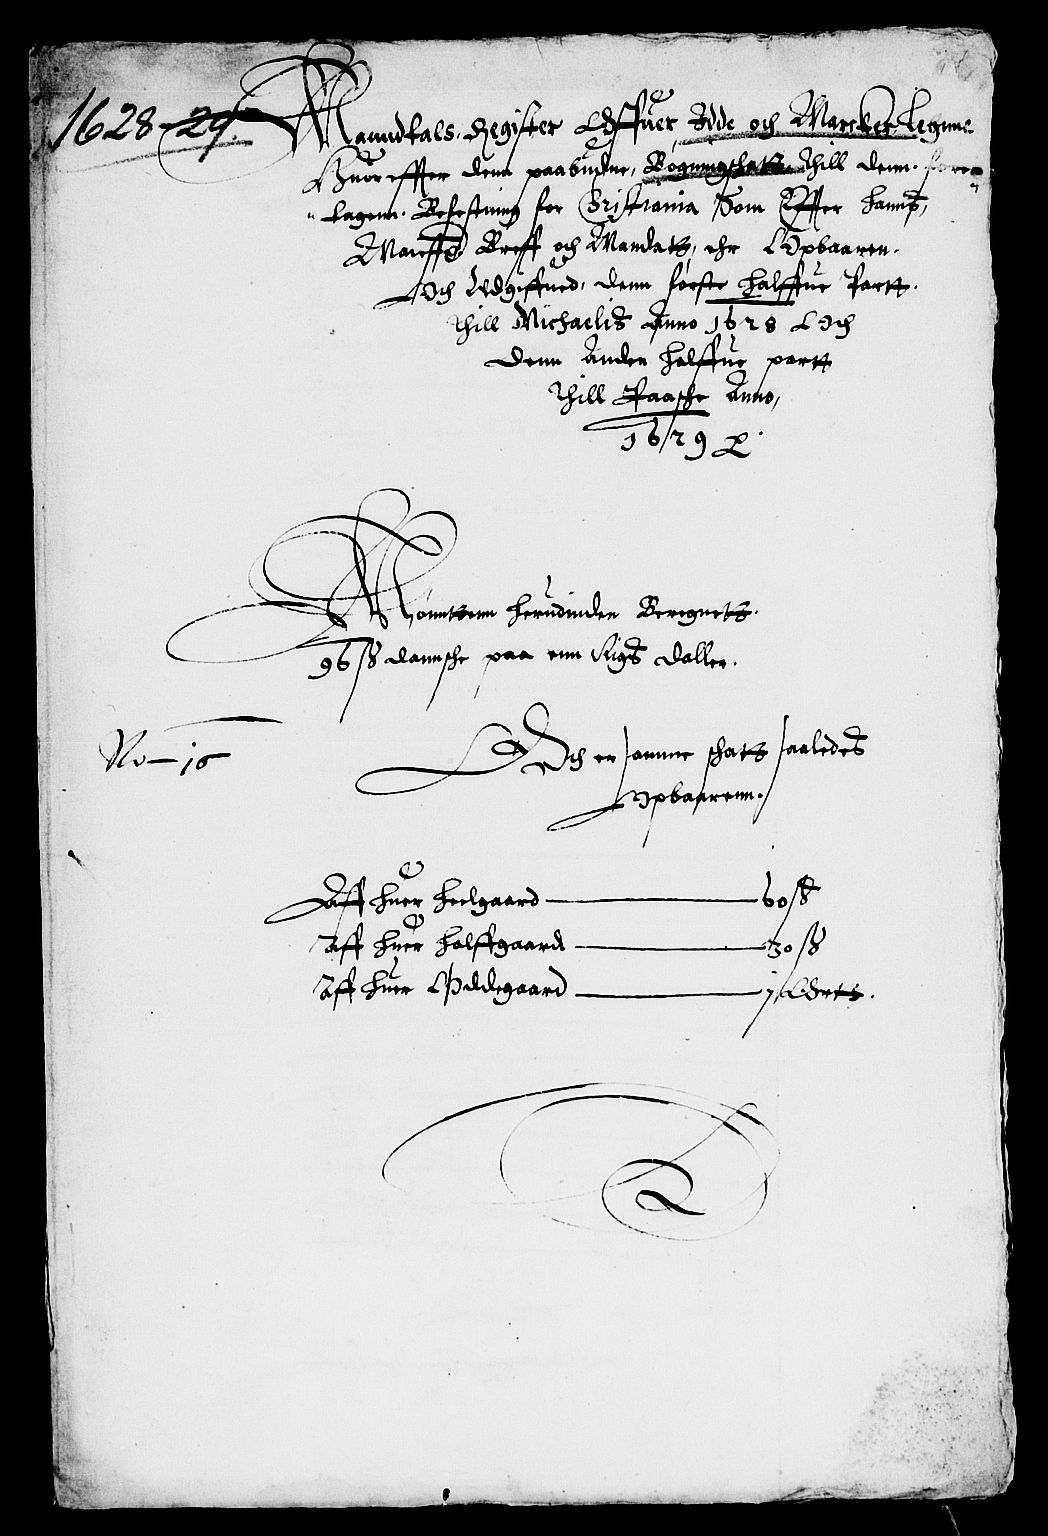 1628-29.
Manndtals Register Offuer Idde och Marcker Legnne
Huoreffter denn paabudne, Bogningschatt thill denn fore-
"tagenn. Befestning for Cristiania Som Effter hanns,
Maietts Breff och Mandats, ehr Opbaaren.
Och Udgiffued, denn første halffue Partt.
Thill Michaelis Anno 1628 Och
Denn Anden halffue partt
Thill Paasche Anno,
1629
Mønntenn herudinden Beregnets.
96 ß dannsche paa enn Rigs daller.
No - 16
Och er samme schatt saaledes
Opbaarenn.
Aff huer heelgaard 60 ß
Aff huer halffgaard 30 ß
Aff huer Øddegaard 1 Ortt.